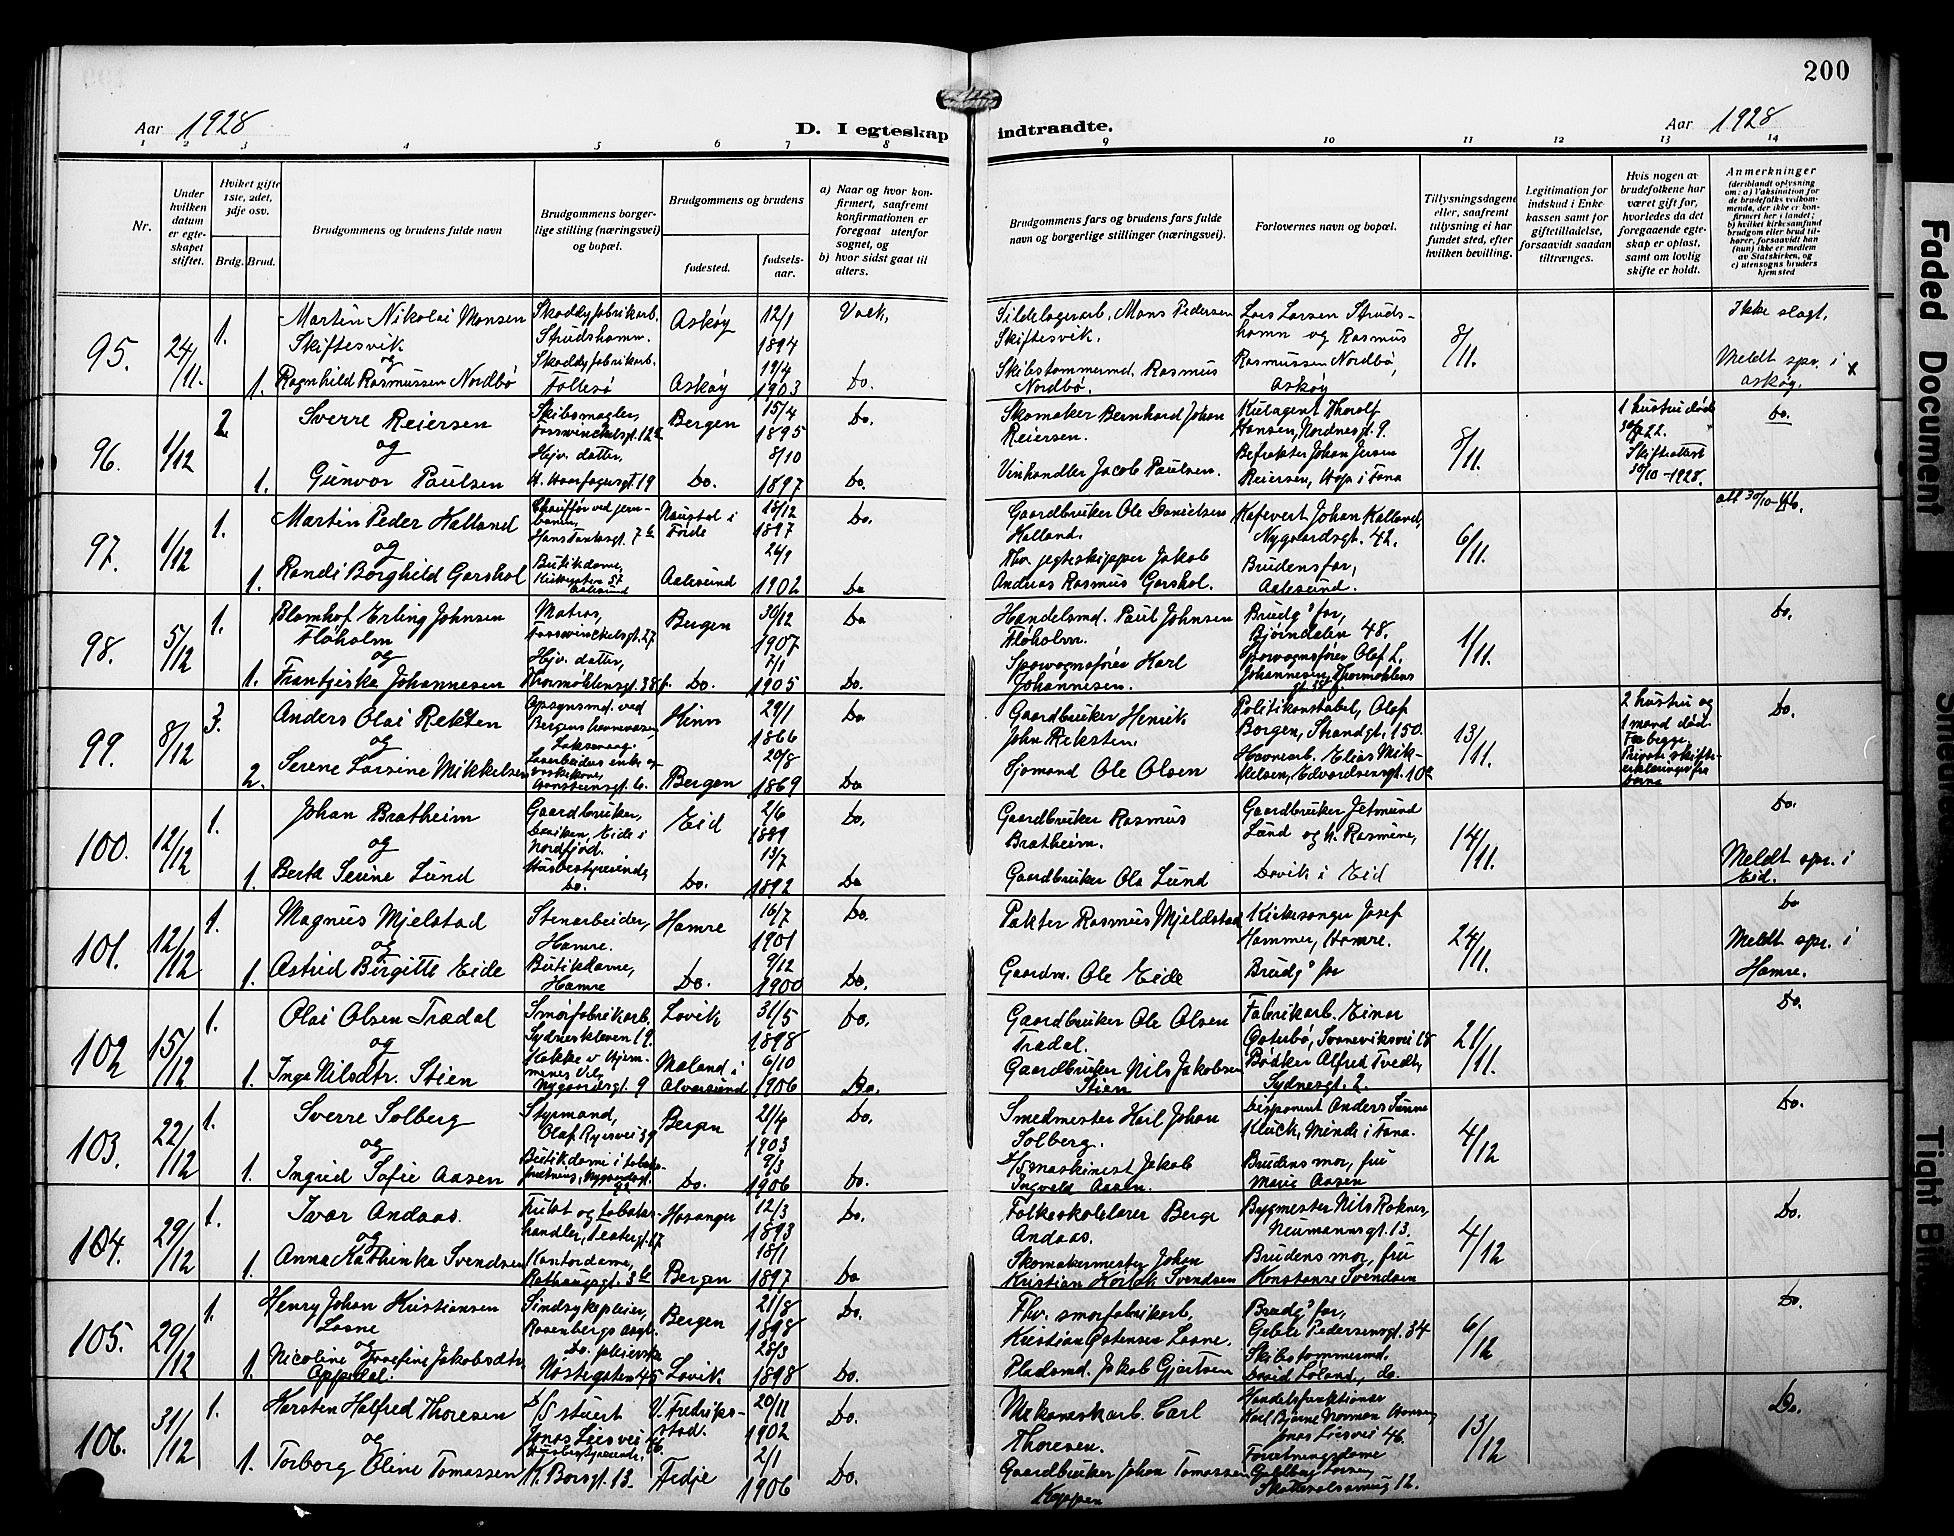 200
Aar 1928
D. I egteskap indtraadte.
Aar 1928
1 2 3 4 5 6 7 8 9 10 11 12 13 14
Nr.
Under hvilken datum er egteskapet stiftet.
Hvilket gifte 1ste, 2det, 3dje osv.
Brdg. Brud.
Brudgommens og brudens fulde navn
Brudgommens borgerlige stilling (næringsvei) og bopæl.
Brudgommens og brudens
fødested.
fødselsaar.
a) Naar og hvor konfirmert, saafremt konfirmationen er foregaat utenfor sognet, og
b) hvor sidst gaat til alters.
Brudgommens fars og brudens fars fulde navn og borgerlige stillinger (næringsvei).
Forlovernes navn og bopæl.
Tillysningsdagene eller, saafremt tillysning ei har fundet sted, efter hvilken bevilling.
Legitimation for indskud i Enkekassen samt for giftetilladelse, forsaavidt saadan tiltrænges.
Hvis nogen av brudefolkene har været gift før, hvorledes da det foregaaende egteskap er opløst, samt om lovlig skifte er holdt.
Anmerkninger
(deriblandt oplysning om: a) Vaksination for de brudefolks vedkommende, der ikke er konfirmert her i landet; b) hvilket kirkesamfund brudgom eller brud tilhører, forsaavidt han (hun) ikke er medlem av Statskirken, og c) utensogns bruders hjemsted
95. 24/11. 1. Martin Nikolai Monsen Skiftesvik Skoddyfabrikarb. Strudshamn. Askøy 12/1 1894 Vaek. Sildelagerarb. Mons Pedersen Skiftesvik. Lars Larsen Strudshamn og Rasmus 8/11. Ikke slagt.
og
1. Ragnhild Rasmussen Nordbø Skoddyfabrikarb. Follesø Askøy 19/4 1903 Do. Skibstømmermd. Rasmus Nordbø Rasmussen Nordbø, Askøy Meldt spr. i Askøy. x
96. 1/12 2. Sverre Reiersen Skibsmægler, Fosswinckelsgt. 12 Bergen 15/4 1895 Do. Skomaker Bernhard Johan Reiersen. Kulagent Thoralf Hansen, Nordnesgt. 9. 8/11. 1 hustru død 22. Skifteattest 30/10-1928. Do.
og
1. Gunvor Paulsen Hjv. datter, H. Haarfagersgt. 19 Do. 8/10 1897 Do. Vinhandler Jacob Paulsen. Befrakter Johan Jensen Reiersen, Hop i Fana
97. 1/12 1. Martin Peder Halland Chauffør ved jernbanen, Hans Tanksgt. 7 Naustdal i Førde 13/12 1897 Do. Gaardbruker Ole Danielsen Halland. Kafévert Johan Halland, Nygaardsgt. 42. 6/11. att 30/10
og
1. Randi Borghild Garshol Butikdame, Aalesund Aalesund 26/1 1902 Do Fhv. jegteskipper Jakob Andreas Rasmus Garshol. Brudens far, Aalesund.
98. 5/12 1. Blomhof Erling Johnsen Fløholm Matros, Fosswinckelsgt. 27 Bergen 30/12 1907 Do Handelsmd. Paul Johnsen Fløholm. Brudgs far, Bjørndalen 48. 1/11. Do.
og
1. Frantziska Johannesen Hjv. datter, Thormøhlensgt. 38 f. Do. 7/1 1905 Do. Sporvognsfører Karl Johannesen. Sporvognsfører Olaf L. Johannesen, Thormøhlensgt. 38 f.
99. 8/12 3. Anders Olai Reksten Opsynsmd. ved Bergens havnevæsen, Laksevaag. Hinn 29/1 1866 Do Gaardbruker Henrik John Reksten. Politikonstabel, Olaf Borgen, Strandgt. 150. 13/11. 2 hustru og 1 mand død. For begge. Private skifteerklæringer fra barna Do.
og
2. Serene Larsine Mikkelsen Løsarbeiders enke og vaskekone, 6. Bergen 20/8 1869 Do Sjømand Ole Olsen Havnearb. Elias Mikkelsen, Edvardsensgt. 10
100. 12/12 1. Johan Bratheim Gaardbruker, Eide i Nordfjord. Eid 2/6 1889 Do. Gaardbruker Rasmus Bratheim. Gaardbruker Jetmund Lund og h. Rasmine, 14/11. Do.
og
1. Berte Serine Lund Husbestyrerinde, Do. Do. 13/7 1892 Do Gaardbruker Ola Lund Dovik i Eid Meldt spr. i Eid.
101. 12/12 1. Magnus Mjelstad Stenarbeider, Hamre. Hamre 16/7 1901 Do. Pakter Rasmus Mjeldstad Kirkesanger Josef Hammer, Hamre. 24/11. Do
og
1. Astrid Birgitte Eide Butikdame, Hamre Do. 9/12 1900 Do. Gaardm. Ole Eide Brudgs far Meldt spr. i Hamre.
102 15/12 1. Olai Olsen Trædal Smørfabrikarb. Sydneskleven 19. Lavik 31/5 1898 Do. Gaardbruker Ole Olsen Trædal. Fabrikarb. Einar Østerbø, Svaneviksvei 18 21/11. Do.
og
1. Inga Nilsdtr. Stien Kokke v Hjemmenes Vel, Nygaardsgt. 9 Maland i Alversund 6/10 1906 Do. Gaardbruker Nils Jakobsen Stien Bødker Alfred Tvedt, Sydnesgt. 2.
103. 22/12 1. Sverre Solberg Styrmand, Olaf Ryesvei 39 Bergen 21/4 1903 Do. Smedmester Karl Johan Solberg. Disponent Anders Sunne Kluck, Minde i Fana. 4/12 Do.
og
1. Ingrid Sofie Aasen Butikdame i tobaksforretning, Nygaardsgt. Do. 9/3 1906 Do. D/S maskinist Jakob Ingvald Aasen. Brudens mor, fru Marie Aasen
104. 29/12 1. Ivar Andaas. Frukt og tobakshandler, Teatergt. 17 Hosanger 12/3 1893 Do. Folkeskolelærer Berge Andaas. Bygmester Nils Roknes, Neumannsgt. 13. 4/12 Do.
og
1. Anna Kathinka Svendsen Kontordame, Rothaugsgt. 3 b Bergen 18/1 1897 Do Skomakermester Johan Kristian Svendsen Brudens mor, fru Konstanse Svendsen
105. 29/12 1. Henry Johan Kristiansen Losne Sindsykepleier, Rosenbergs asyl. Bergen 21/8 1898 Do. Fhv. smørfabrikarb. Kristian Østensen Losne. Brudgs far, Gabels Pedersensgt. 34 6/12 Do.
og
1. Nicoline Josefine Jakobsdtr. Oppedal. Do. pleierske Nøstegaten 45 Lavik 28/3 1898 Do. Pladsmd. Jakob Gjertsen Skibstømmermd. David Løland, do.
106. 31/12 1. Karsten Halfred Thoresen D/S stuert Jonas Liesvei 46 V. Fredrikstad. 20/11 1902 Do. Mekaniskarb. Carl Thoresen. Handelsfunktionær Karl Bjarne Norman Hansen, Jonas Liesvei 46. 13/12 Do.
og
1. Torborg Eline Tomassen Husbestyrerinde, K. Borsgt. 13. Fedje 2/1 1906 Do. Gaardbruker Johan Tomassen Koppen Forretningsdame 12.
Faded Document
Tight Bin